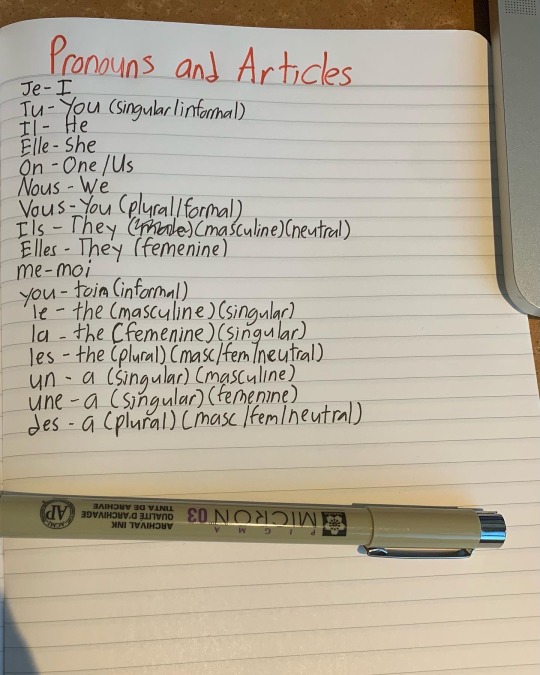 Pronouns and Articles
Je - I
Tu - You (singular/informal)
Il - He
Elle - She
On - One/Us
Nous - We
Vous - You (plural/formal)
Ils - They (masculine)(neutral)
Elles - They (femenine)
me - moi
you - toi (informal)
le - the (masculine)(singular)
la - the (femenine)(singular)
les - the (plural)(masc/fem/neutral)
un - a (singular)(masculine)
une - a (singular)(femenine)
des - a (plural)(masc/fem/neutral)
PIGMA
MICRON 03
ARCHIVAL INK
QUALITÉ D'ARCHIVAGE
TINTA DE ARCHIVE
AP